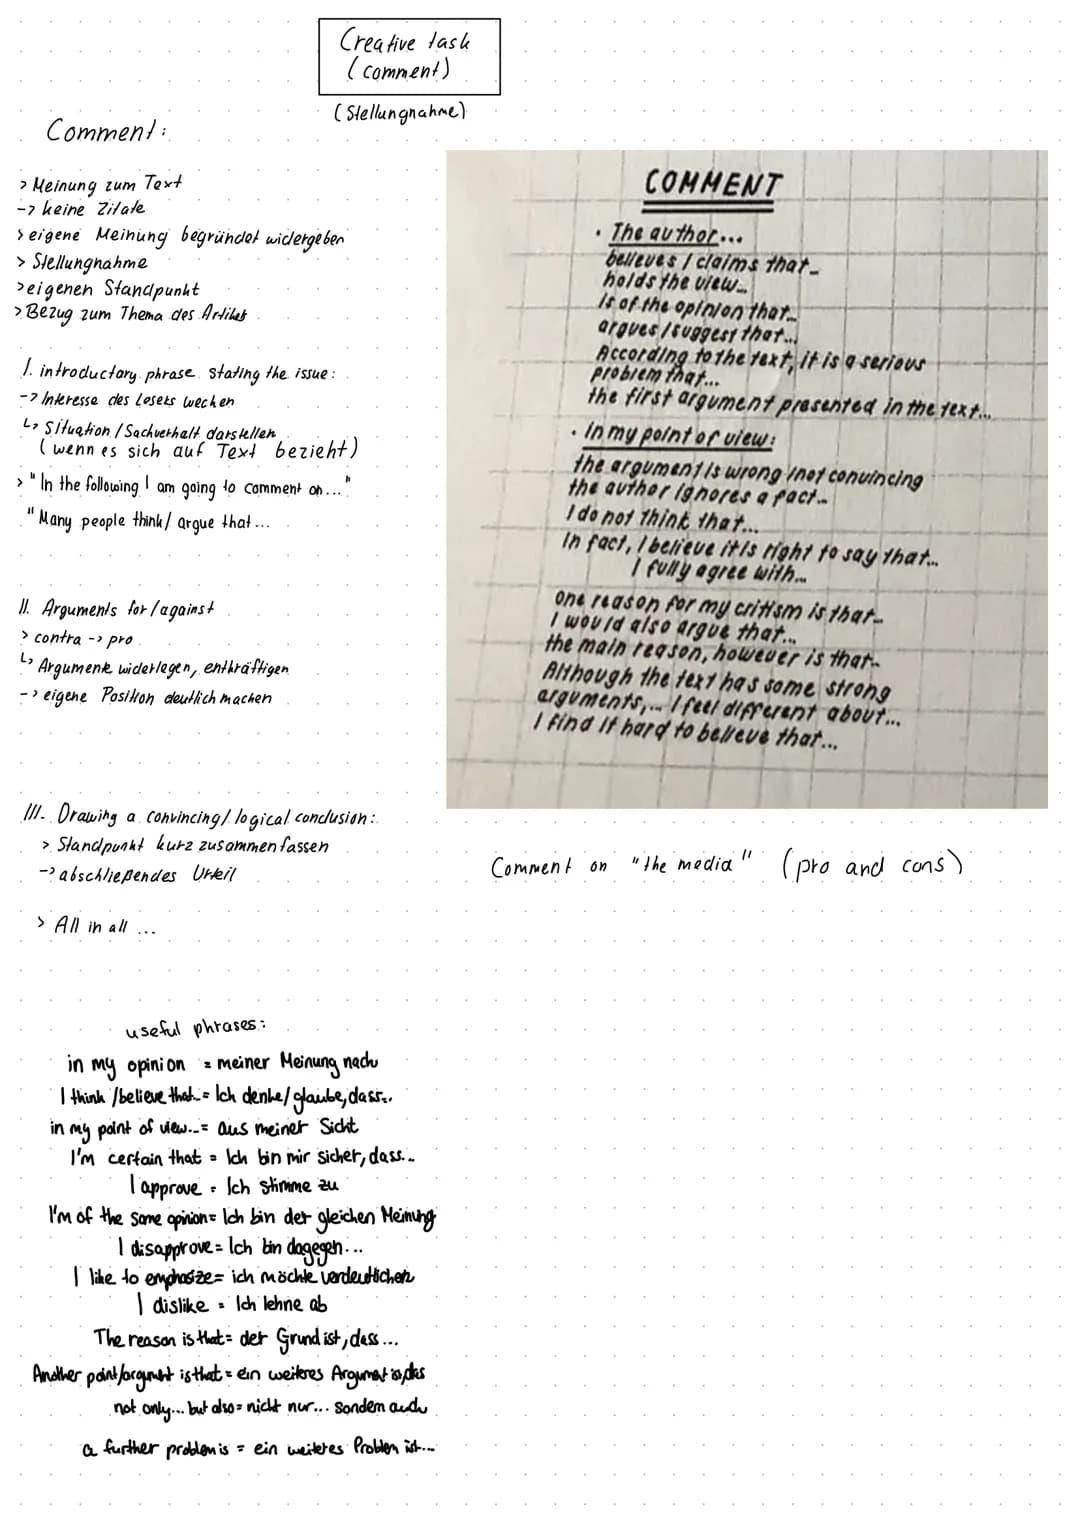 Creative task
(comment)
(Stellungnahme)
Comment:
> Meinung zum Text
-> keine Zitate
> eigene Meinung begründet widergeben
> Stellungnahme
> eigenen Standpunkt
> Bezug zum Thema des Artikels
I. introductory phrase stating the issue:
-> Interesse des Lesers wecken
↳ Situation / Sachverhalt darstellen
(wenn es sich auf Text bezieht)
> "In the following I am going to comment on..."
"Many people think/ argue that...
II. Arguments for/against
> contra -> pro
↳ Argumente widerlegen, entkräftigen
-> eigene Position deutlich machen
III. Drawing a convincing/ logical conclusion:
> Standpunkt kurz zusammenfassen
-> abschließendes Urteil
> All in all ...
COMMENT
• The author...
believes / claims that...
holds the view...
is of the opinion that...
argues / suggest that...
According to the text, it is a serious
problem that...
the first argument presented in the text...
• In my point of view:
the argument is wrong / not convincing
the author ignores a fact...
I do not think that...
In fact, I believe it is right to say that...
I fully agree with...
one reason for my critism is that...
I would also argue that...
the main reason, however is that...
Although the text has some strong
arguments,... I feel different about...
I find it hard to believe that...
Comment on "the media" (pro and cons)
useful phrases:
in my opinion = meiner Meinung nach
I think /believe that... = Ich denke/glaube, dass...
in my point of view... = aus meiner Sicht
I'm certain that = Ich bin mir sicher, dass...
I approve = Ich stimme zu
I'm of the same opinion = Ich bin der gleichen Meinung
I disapprove = Ich bin dagegen...
I like to emphasize = ich möchte verdeutlichen
I dislike = Ich lehne ab
The reason is that = der Grund ist, dass...
Another point/argument is that = ein weiteres Argument ist, das
not only... but also = nicht nur... sondern auch
a further problem is = ein weiteres Problem ist...